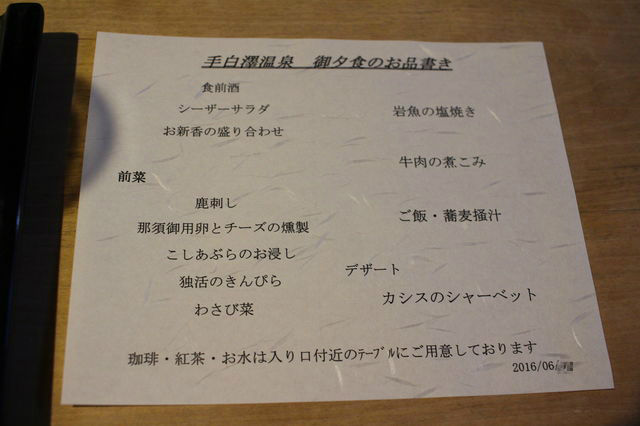 手白澤温泉　御夕食のお品書き
食前酒
シーザーサラダ
お新香の盛り合わせ
前菜
鹿刺し
那須御用卵とチーズの燻製
こしあぶらのお浸し
独活のきんぴら
わさび菜
岩魚の塩焼き
牛肉の煮こみ
ご飯・蕎麦掻汁
デザート
カシスのシャーベット
珈琲・紅茶・お水は入り口付近のﾃｰﾌﾞﾙにご用意しております
2016/06